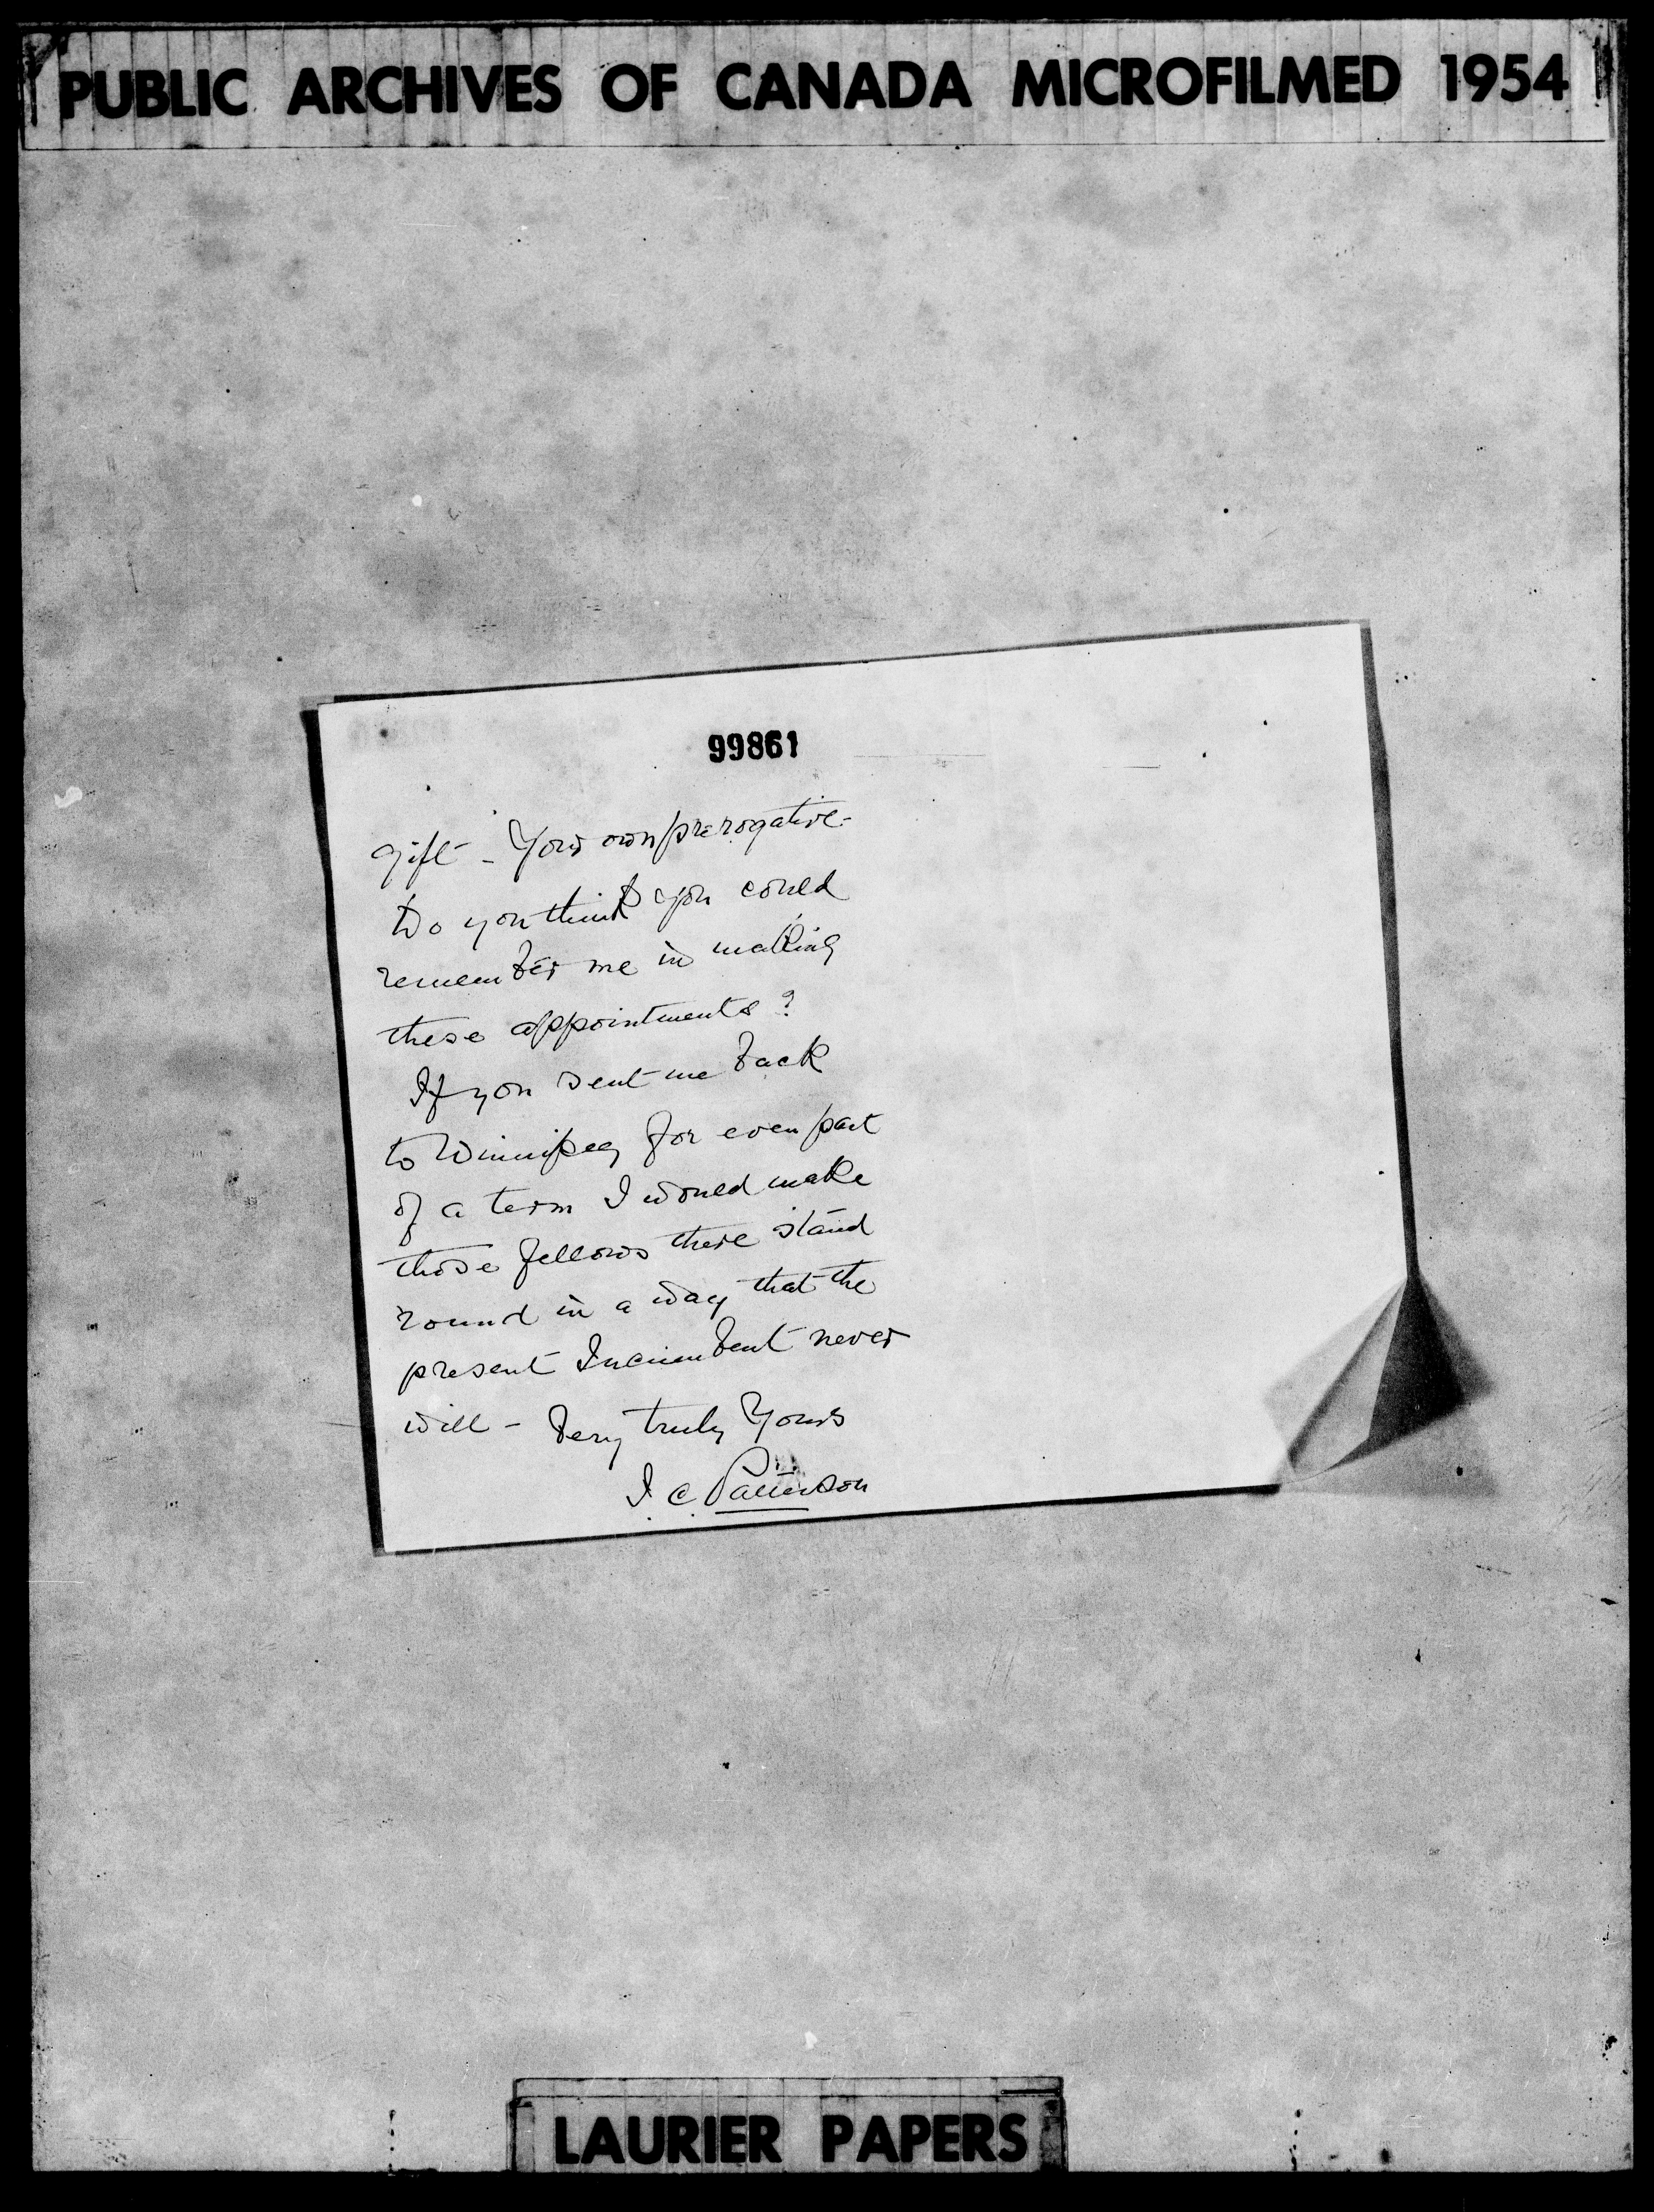 PUBLIC ARCHIVES OF CANADA MICROFILMED 1954
99861
gift - Your own prerogative -
Do you think you could
remember me in making
these appointments?
If you sent me back
to Winnipeg for even part
of a term I would make
those fellows there stand
round in a way that the
present Incumbent never
will - Very truly Yours
J. C. Patterson
LAURIER PAPERS